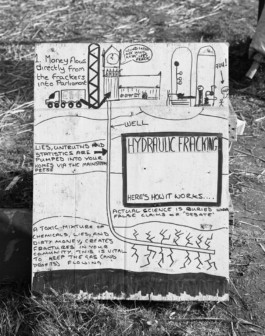 1. Money flows
directly from
the frackers
into Parliament
WELL
LIES, UNTRUTHS AND
STATISTICS ARE
PUMPED INTO YOUR
HOMES VIA THE MAINSTREAM
HYDRAULIC FRACKING
HERE'S HOW IT WORKS....
ACTUAL SCIENCE IS BURIED UNDER
FALSE CLAIMS OR "DEBATE"
A TOXIC MIXTURE OF
CHEMICALS, LIES, AND
DIRTY MONEY, CREATES
FRACTURES IN YOUR
COMMUNITY. THIS IS VITAL
TO KEEP THE GAS (AND
PROFITS) FLOWING